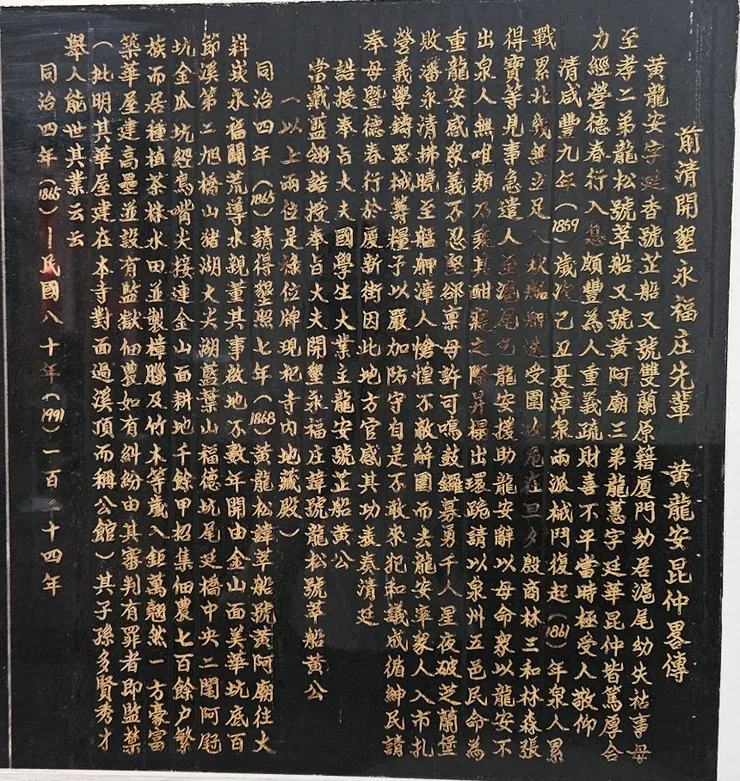 前清開墾永福庄先輩 黃龍安昆仲畧傳
黃龍安字廷香號芷船又號雙蘭原籍厦門幼居滬尾幼失祜事母
至孝二弟龍松號萃船又號黃阿廟三弟龍蕙字廷華昆仲皆篤厚合
力經營德春行入息頗豐為人重義疏財喜不平當時極受人敬仰
清咸豐九年(1859)歲次己丑憂漳泉兩派械鬥復起(1861)年泉人累
戰累北幾無立足人秋艋舺遂受圍 危在旦夕殷商林三和林森張
得寶等見事急遣人至滬尾乞龍安援助龍安辭以母命泉以龍安不
出泉人無唯類乃乘其酣寢之際昇櫈出環跪請以泉州五邑民命為
重龍安感衆義不忍堅郤稟母許可鳴鼓鑼募勇千人星夜破芝蘭堡
敗潘永清拂曉至艋舺漳人愴惶不敵解圍而去龍安率衆人入市扎
營義學鑄器械籌糧予以嚴加防守自是不敢來犯和議成循紳民請
奉母暨德春行於厦新街因此地方官感其功表奏清廷
誥授奉旨大夫國學生大業主龍安號芷船黃公
當戴藍翎誥授奉旨大夫開墾永福庄諱號龍松號萃船黃公
(以上兩位是祿位牌現祀寺內地藏殿)
同治四年(1865)請得墾照七年(1868)黃龍松諱萃船號黃阿廟往大
嵙崁永福關荒導水親董其事啟地不數年開由金山面美華坑底百
節溪第二旭橋山猪湖火尖湖藍葉山福德坑尾廷橋中央二鬮阿屘
坑金瓜坑經鳥嘴尖接連金山面耕地千餘甲招集佃農七百餘户繁
族而居種植茶株水田並製樟腦及竹木等歲入鉅萬翹然一方豪富
築華屋建高壘並設有監獄佃農如有糾紛由其審判有罪者即監禁
(批明其華屋建在本寺對面過溪頂而稱公館)其子孫多賢秀才
舉人能世其業云云
同治四年(1865)—民國八十年(1991)一百二十四年